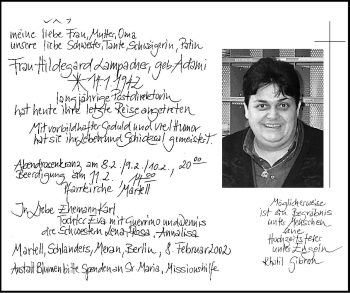 meine liebe Frau, Mutter, Oma
unsere liebe Schwester, Tante, Schwägerin, Patin
Frau Hildegard Lampacher, geb. Adami
* 17.1.1942
langjährige Postdirektorin
hat heute ihre letzte Reise angetreten
Mit vorbildhafter Geduld und viel Humor
hat sie ihr Leben und Schicksal gemeistert.
Abendrosenkranz am 8.2. / 9.2. / 10.2., 20⁰⁰
Beerdigung am 11.2. 14⁰⁰
Pfarrkirche / Martell
In Liebe Ehemann Karl
Tochter Eva mit Guerrino und Dennis
die Schwestern Lena, Rosa, Annalisa
Martell, Schlanders, Meran, Berlin, 8. Februar 2002
Anstatt Blumen bitte Spenden an Sr. Maria, Missionshilfe
Möglicherweise
ist ein Begräbnis
unter Menschen
eine
Hochzeitsfeier
unter Engeln
Khalil Gibran